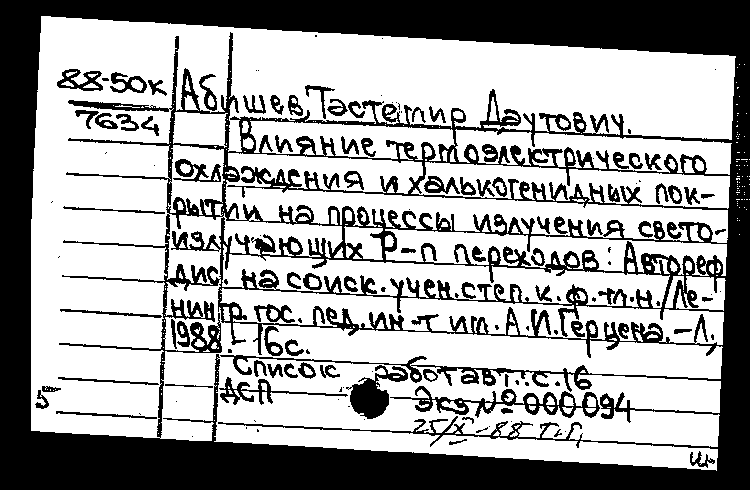 88-50к
7634
Абишев, Тастемир Даутович.
Влияние термоэлектрического
охлаждения и халькогенидных пок-
рытий на процессы излучения свето-
излучающих Р-п переходов: Автореф
дис. на соиск. учен. степ. к. ф.-м. н. /Ле-
нингр. гос. пед. ин-т им. А.И.Герцена. – Л.,
1988. – 16 с.
Список работ авт.: с. 16
ДСП Экз № 000094
5 25/X-88 Т.Г.